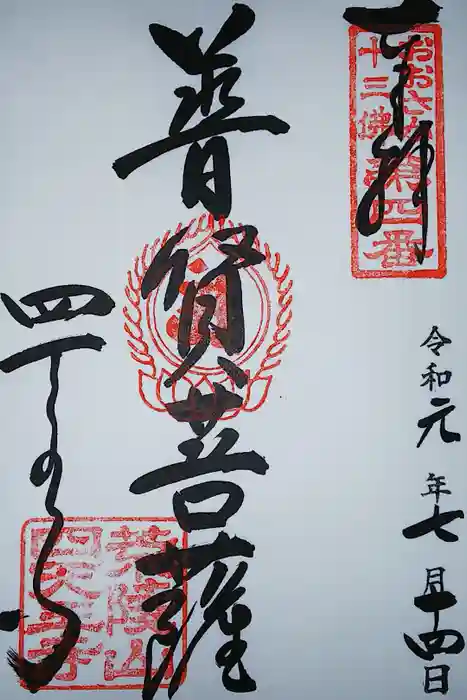 奉拝
おおさか
十三佛第四番
令和元年七月十四日
普賢菩薩
四天王寺
荒陵山
四天王寺